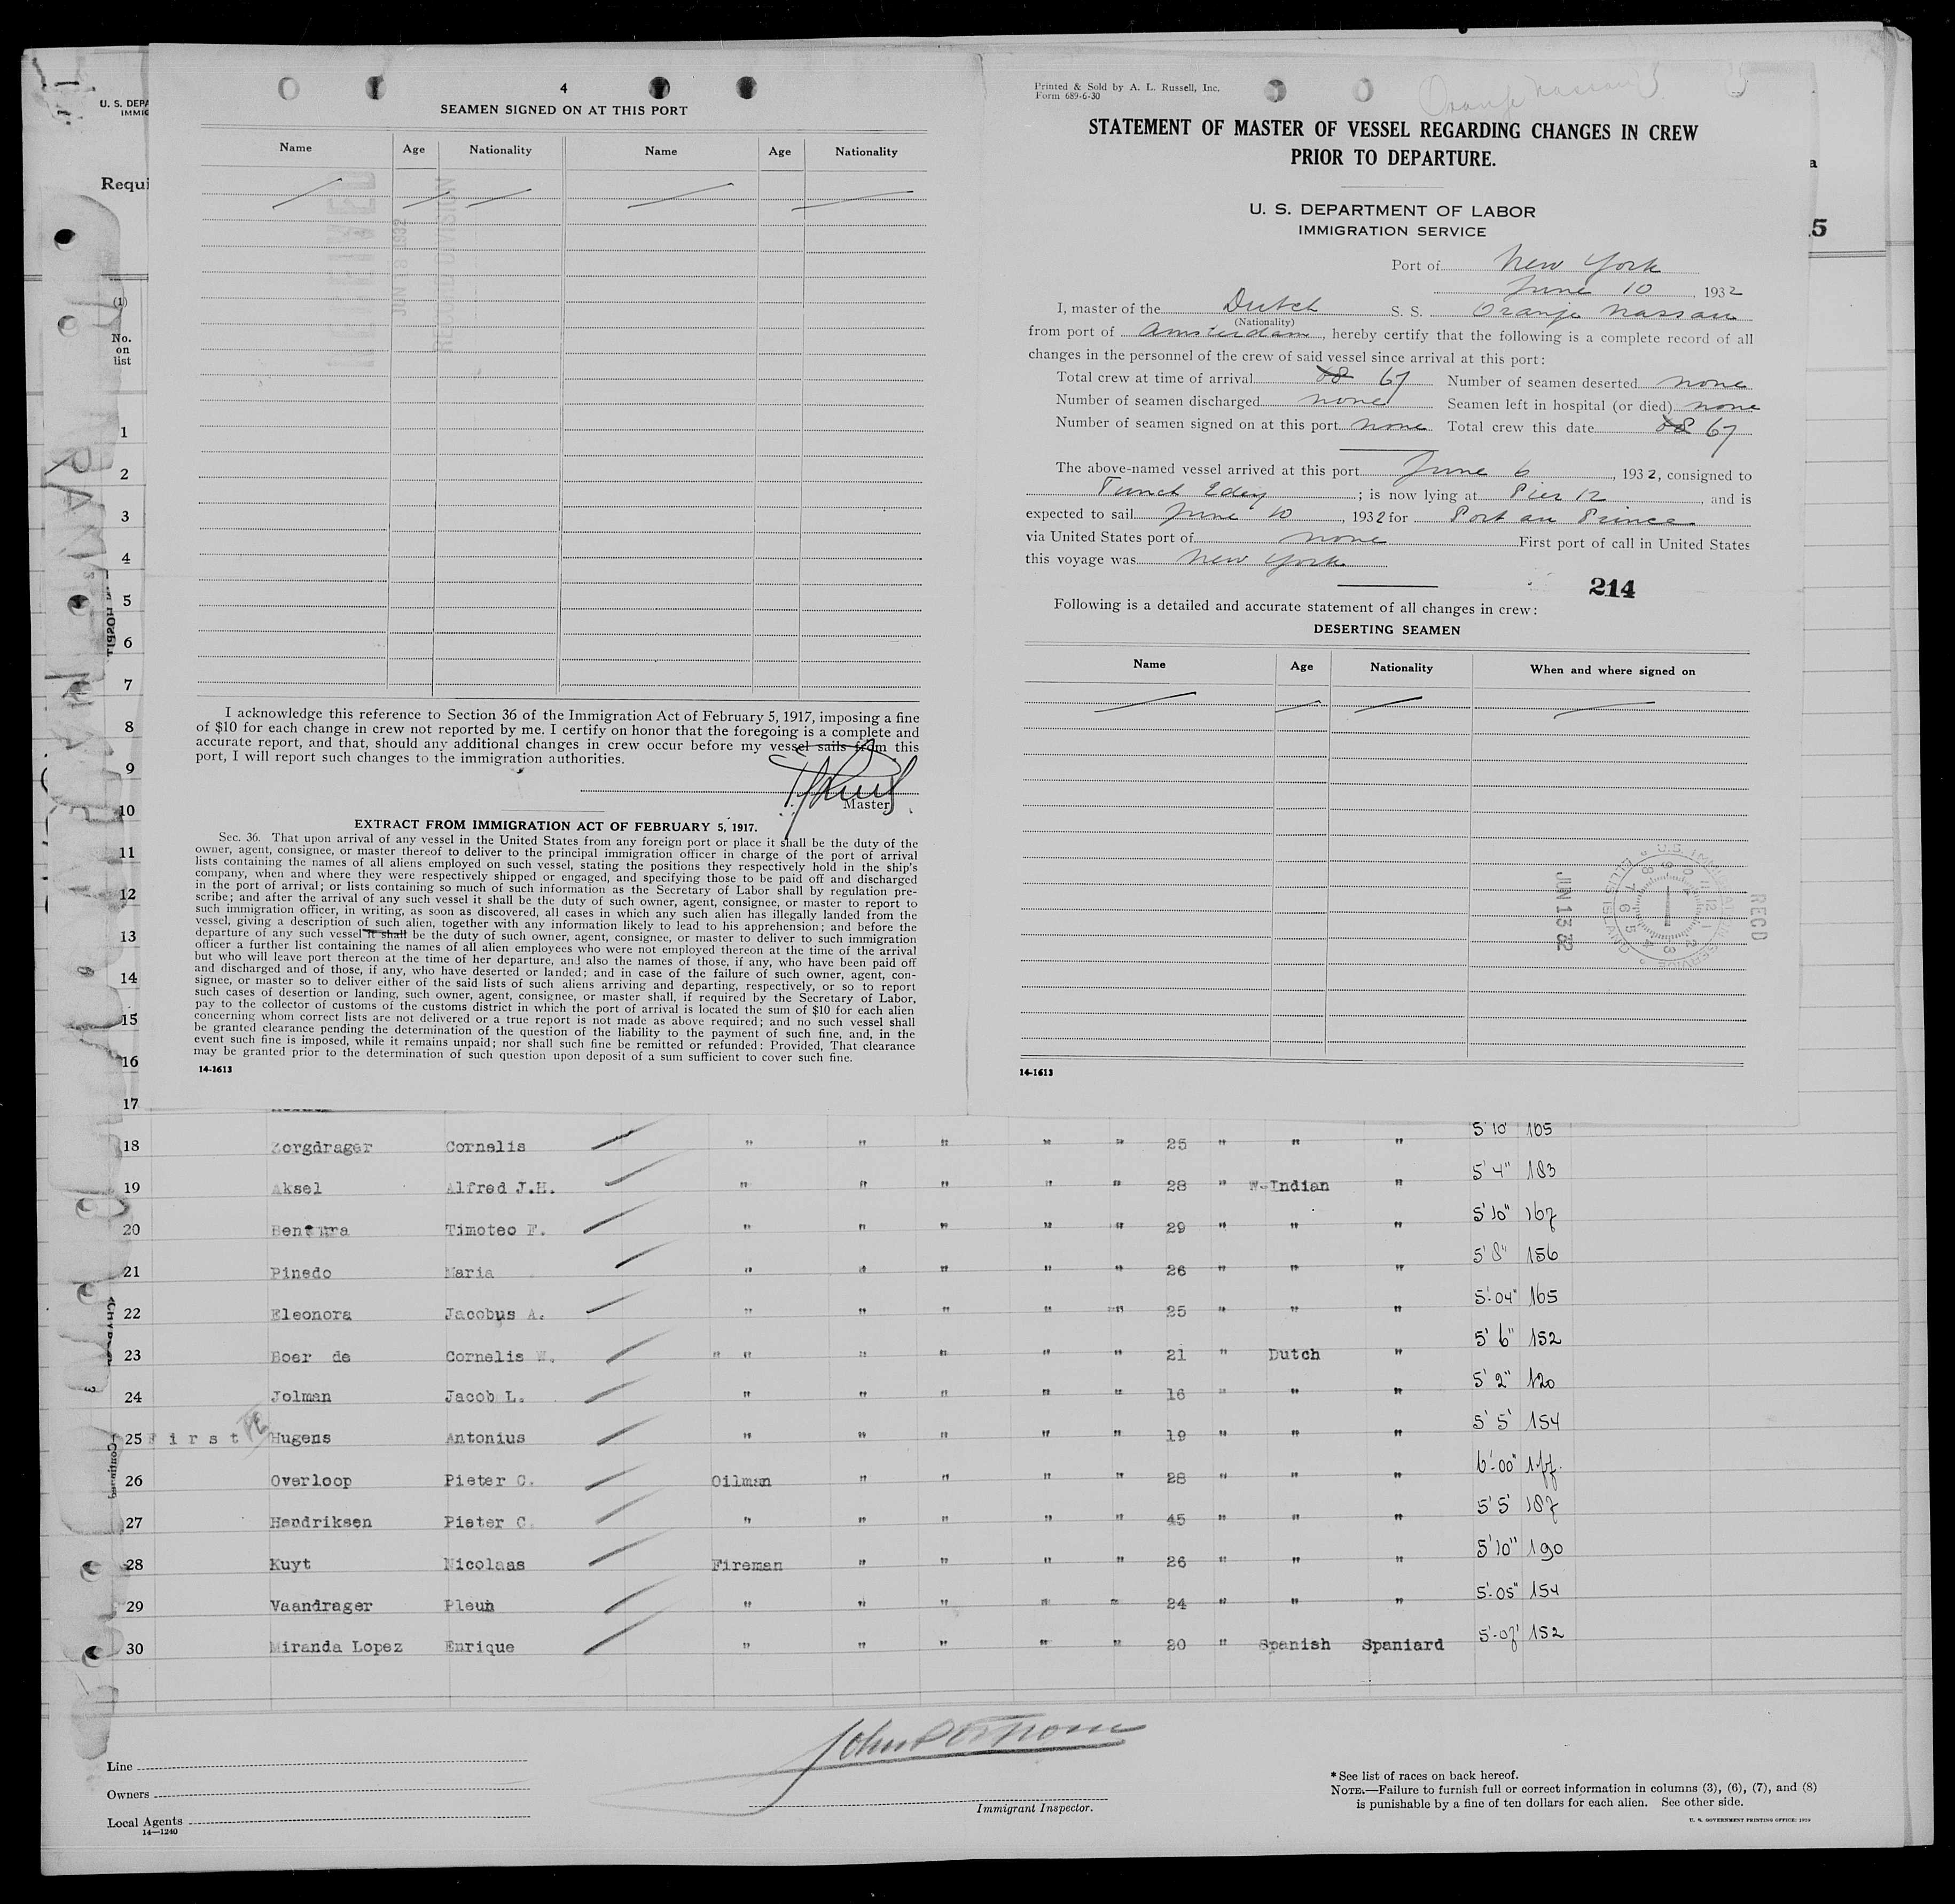 4
SEAMEN SIGNED ON AT THIS PORT
Name Age Nationality Name Age Nationality
I acknowledge this reference to Section 36 of the Immigration Act of February 5, 1917, imposing a fine
of $10 for each change in crew not reported by me. I certify on honor that the foregoing is a complete and
accurate report, and that, should any additional changes in crew occur before my vessel sails from this
port, I will report such changes to the immigration authorities.
Master
EXTRACT FROM IMMIGRATION ACT OF FEBRUARY 5, 1917.
Sec. 36. That upon arrival of any vessel in the United States from any foreign port or place it shall be the duty of the
owner, agent, consignee, or master thereof to deliver to the principal immigration officer in charge of the port of arrival
lists containing the names of all aliens employed on such vessel, stating the positions they respectively hold in the ship's
company, when and where they were respectively shipped or engaged, and specifying those to be paid off and discharged
in the port of arrival; or lists containing so much of such information as the Secretary of Labor shall by regulation pre-
scribe; and after the arrival of any such vessel it shall be the duty of such owner, agent, consignee, or master to report to
such immigration officer, in writing, as soon as discovered, all cases in which any such alien has illegally landed from the
vessel, giving a description of such alien, together with any information likely to lead to his apprehension; and before the
departure of any such vessel it shall be the duty of such owner, agent, consignee, or master to deliver to such immigration
officer a further list containing the names of all alien employees who were not employed thereon at the time of the arrival
but who will leave port thereon at the time of her departure, and also the names of those, if any, who have been paid off
and discharged and of those, if any, who have deserted or landed; and in case of the failure of such owner, agent, con-
signee, or master so to deliver either of the said lists of such aliens arriving and departing, respectively, or so to report
such cases of desertion or landing, such owner, agent, consignee, or master shall, if required by the Secretary of Labor,
pay to the collector of customs of the customs district in which the port of arrival is located the sum of $10 for each alien
concerning whom correct lists are not delivered or a true report is not made as above required; and no such vessel shall
be granted clearance pending the determination of the question of the liability to the payment of such fine, and, in the
event such fine is imposed, while it remains unpaid; nor shall such fine be remitted or refunded: Provided, That clearance
may be granted prior to the determination of such question upon deposit of a sum sufficient to cover such fine.
14-1613
Printed & Sold by A. L. Russell, Inc.
Form 689-6-30
Oranje Nassau
STATEMENT OF MASTER OF VESSEL REGARDING CHANGES IN CREW
PRIOR TO DEPARTURE.
U. S. DEPARTMENT OF LABOR
IMMIGRATION SERVICE
Port of New York
June 10, 1932
I, master of the Dutch S. S. Oranje Nassau
(Nationality)
from port of Amsterdam, hereby certify that the following is a complete record of all
changes in the personnel of the crew of said vessel since arrival at this port:
Total crew at time of arrival 67 Number of seamen deserted none
Number of seamen discharged none Seamen left in hospital (or died) none
Number of seamen signed on at this port none Total crew this date 67
The above-named vessel arrived at this port June 6, 1932, consigned to
Funch Edey; is now lying at Pier 12, and is
expected to sail June 10, 1932 for Port au Prince
via United States port of none First port of call in United States
this voyage was New York
214
Following is a detailed and accurate statement of all changes in crew:
DESERTING SEAMEN
Name Age Nationality When and where signed on
REC'D
JUN 13 32
14-1613
U. S. DEPA
IMMIG
Requi
5
(1)
No.
on
list
1
2
3
4
5
6
7
8
9
10
11
12
13
14
15
16
17
18 Zorgdrager Cornelis " " " " " 25 " " " 5'10 165
19 Aksel Alfred J.H. " " " " " 28 " W-Indian " 5'4" 183
20 Bentura Timoteo F. " " " " " 29 " " " 5'10" 167
21 Pinedo Maria " " " " " 26 " " " 5'8" 156
22 Eleonora Jacobus A. " " " " " 25 " " " 5'-04" 165
23 Boer de Cornelis W. " " " " " " 21 " Dutch " 5'6" 152
24 Jolman Jacob L. " " " " " 16 " " " 5'2" 120
25 First Hugens Antonius " " " " " 19 " " " 5'5' 154
26 Overloop Pieter C. Oilman " " " " 28 " " " 6'-00" 177
27 Hendriksen Pieter C. " " " " " 45 " " " 5'5' 187
28 Kuyt Nicolaas Fireman " " " " 26 " " " 5'10" 190
29 Vaandrager Pleun " " " " " 24 " " " 5'-05" 154
30 Miranda Lopez Enrique " " " " " 20 " Spanish Spaniard 5'-07' 152
Line
Owners
Local Agents
14-1240
Immigrant Inspector.
* See list of races on back hereof.
NOTE.—Failure to furnish full or correct information in columns (3), (6), (7), and (8)
is punishable by a fine of ten dollars for each alien. See other side.
U. S. GOVERNMENT PRINTING OFFICE: 1929